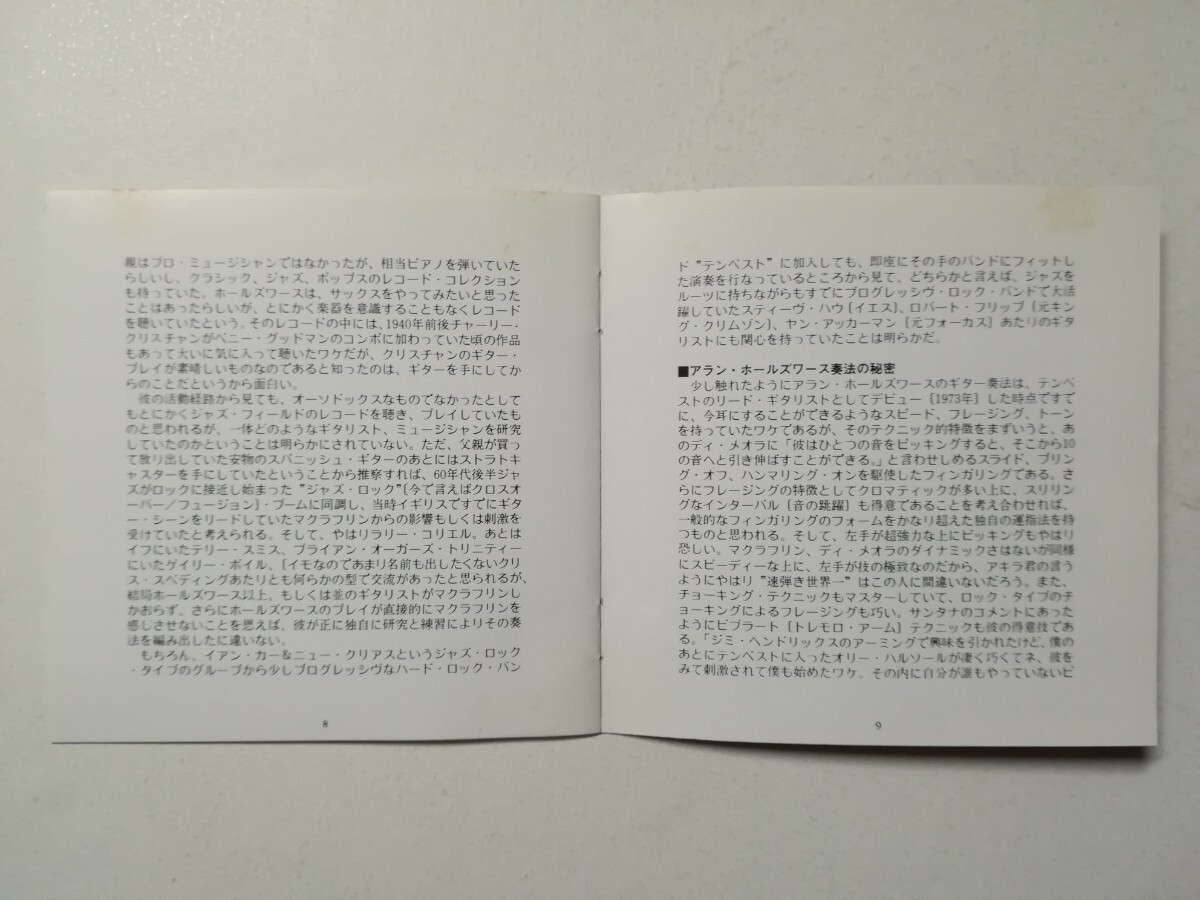 親はプロ・ミュージシャンではなかったが、相当ピアノを弾いていた
らしいし、クラシック、ジャズ、ポップスのレコード・コレクション
も持っていた。ホールズワースは、サックスをやってみたいと思った
ことはあったらしいが、とにかく楽器を意識することもなくレコード
を聴いていたという。そのレコードの中には、1940年前後チャーリー・
クリスチャンがベニー・グッドマンのコンボに加わっていた頃の作品
もあって大いに気に入って聴いたワケだが、クリスチャンのギター・
プレイが素晴しいものなのであると知ったのは、ギターを手にしてか
らのことだというから面白い。
彼の活動経路から見ても、オーソドックスなものでなかったとして
もとにかくジャズ・フィールドのレコードを聴き、プレイしていたも
のと思われるが、一体どのようなギタリスト、ミュージシャンを研究
していたのかということは明らかにされていない。ただ、父親が買っ
て放り出していた安物のスパニッシュ・ギターのあとにはストラトキ
ャスターを手にしていたということから推察すれば、60年代後半ジャ
ズがロックに接近し始まった“ジャズ・ロック”〔今で言えばクロスオ
ーバー／フュージョン〕・ブームに同調し、当時イギリスですでにギタ
ー・シーンをリードしていたマクラフリンからの影響もしくは刺激を
受けていたと考えられる。そして、やはりラリー・コリエル。あとは
イフにいたテリー・スミス、ブライアン・オーガーズ・トリニティー
にいたゲイリー・ボイル、〔イモなのであまり名前も出したくないクリ
ス・スペディングあたりとも何らかの型で交流があったと思られるが、
結局ホールズワース以上、もしくは並のギタリストがマクラフリンし
かおらず、さらにホールズワースのプレイが直接的にマクラフリンを
感じさせないことを思えば、彼が正に独自に研究と練習によりその奏
法を編み出したに違いない。
もちろん、イアン・カー＆ニュー・クリアスというジャズ・ロック
・タイプのグループから少しプログレッシヴなハード・ロック・バン
8
ド“テンペスト”に加入しても、即座にその手のバンドにフィットし
た演奏を行なっているところから見て、どちらかと言えば、ジャズを
ルーツに持ちながらもすでにプログレッシヴ・ロック・バンドで大活
躍していたスティーヴ・ハウ〔イエス〕、ロバート・フリップ〔元キン
グ・クリムゾン〕、ヤン・アッカーマン〔元フォーカス〕あたりのギタ
リストにも関心を持っていたことは明らかだ。
■アラン・ホールズワース奏法の秘密
少し触れたようにアラン・ホールズワースのギター奏法は、テンペ
ストのリード・ギタリストとしてデビュー〔1973年〕した時点ですで
に、今耳にすることができるようなスピード、フレージング、トーン
を持っていたワケであるが、そのテクニック的特徴をまずいうと、あ
のディ・メオラに「彼はひとつの音をピッキングすると、そこから10
の音へと引き伸ばすことができる。」と言わせしめるスライド、プリン
グ・オフ、ハンマリング・オンを駆使したフィンガリングである。さ
らにフレージングの特徴としてクロマティックが多い上に、スリリン
グなインターバル〔音の跳躍〕も得意であることを考え合わせれば、
一般的なフィンガリングのフォームをかなり超えた独自の運指法を持
つものと思われる。そして、左手が超強力な上にピッキングもやはり
恐しい。マクラフリン、ディ・メオラのダイナミックさはないが同様
にスピーディーな上に、左手が技の極致なのだから、アキラ君の言う
ようにやはり“速弾き世界一”はこの人に間違いないだろう。また、
チョーキング・テクニックもマスターしていて、ロック・タイプのチ
ョーキングによるフレージングも巧い。サンタナのコメントにあった
ようにビブラート〔トレモロ・アーム〕テクニックも彼の得意技であ
る。「ジミ・ヘンドリックスのアーミングで興味を引かれたけど、僕の
あとにテンペストに入ったオリー・ハルソールが凄く巧くてネ、彼を
みて刺激されて僕も始めたワケ。その内に自分が誰もやっていないビ
9